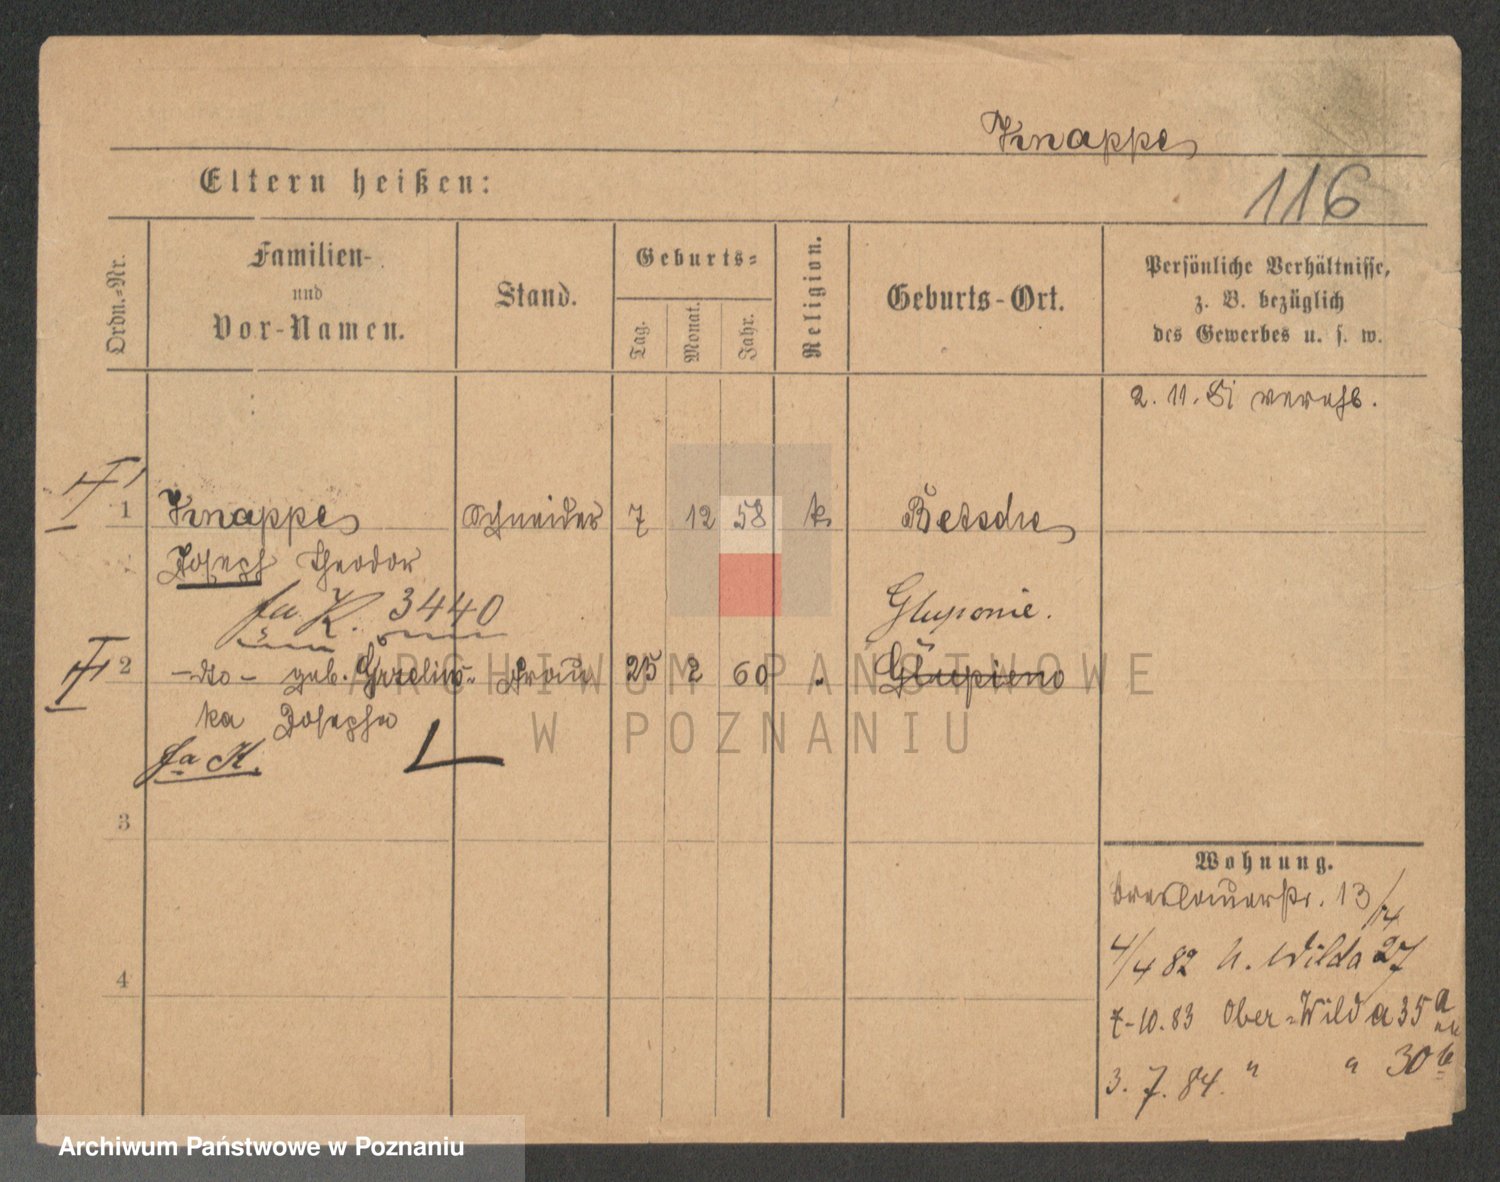 Knappe
Eltern heißen:
116
Ordn.-Nr.
Familien-
und
Vor-Namen.
Stand.
Geburts-
Tag.
Monat.
Jahr.
Religion.
Geburts-Ort.
Persönliche Verhältnisse,
z. B. bezüglich
des Gewerbes u. s. w.
2. 11. 81 vereh.
1 Knappe Schneider 7 12 58 k. Betsche
Joseph Theodor
fa. K. 3440
Gluponie.
2 -do- geb. Grzelins- Frau 25 2 60 " Glupieno
ka Josepha
fa K.
3
4
Wohnung.
Breslauerstr. 13/
4/4 82 U. Wilda 27
7-10.83 Ober-Wilda 35a
3. 7. 84. " " 30b
ARCHIWUM PAŃSTWOWE
W POZNANIU
Archiwum Państwowe w Poznaniu